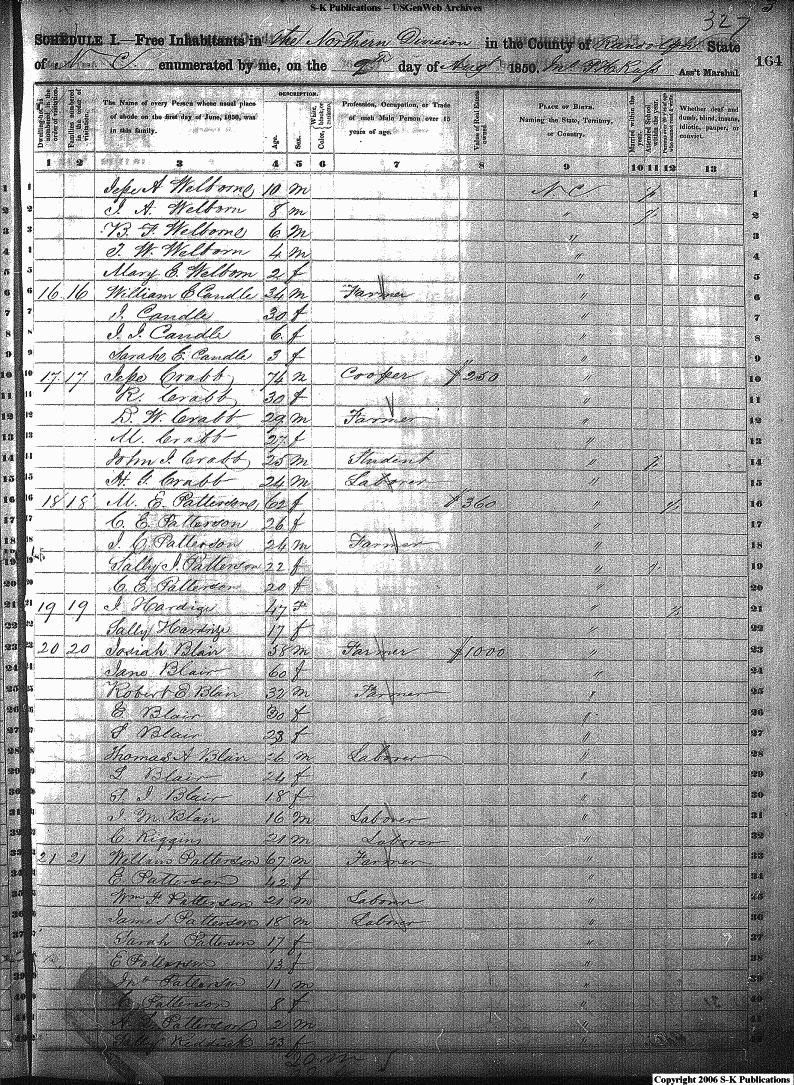 S-K Publications – USGenWeb Archives
327
SCHEDULE I.—Free Inhabitants in the Northern Division in the County of Randolph State
of N. C. enumerated by me, on the 2d day of Augt 1850. Ass't Marshal.
164
DESCRIPTION.
Dwelling-houses numbered in the order of visitation.
Families numbered in the order of visitation.
The Name of every Person whose usual place of abode on the first day of June, 1850, was in this family.
Age.
Sex.
Color, White, black, or mulatto.
Profession, Occupation, or Trade of each Male Person over 15 years of age.
Value of Real Estate owned.
PLACE OF BIRTH. Naming the State, Territory, or Country.
Married within the year.
Attended School within the year.
Whether deaf and dumb, blind, insane, idiotic, pauper, or convict.
1 2 3 4 5 6 7 8 9 10 11 12 13
1 Jesse A Welborn 10 m N C / 1
2 J. A. Welborn 8 m " / 2
3 B. F. Welborn 6 m " 3
4 J. W. Welborn 4 m " 4
5 Mary E. Welborn 2 f " 5
6 16 16 William E Caudle 34 m Farmer " 6
7 J. Caudle 30 f " 7
8 J. J. Caudle 6 f " 8
9 Sarah E. Caudle 3 f " 9
10 17 17 Jesse Crabb 74 m Cooper $250 " 10
11 R. Crabb 30 f " 11
12 D. W. Crabb 29 m Farmer " 12
13 M. Crabb 27 f " 13
14 John J. Crabb 25 m Student " / 14
15 H. G. Crabb 24 m Laborer " 15
16 18 18 M. E. Patterson 62 f $360 " / 16
17 C. E. Patterson 26 f " 17
18 J. C. Patterson 24 m Farmer " 18
19 Sally J. Patterson 22 f " / 19
20 C. E. Patterson 20 f " 20
21 19 19 J. Hardige 47 f " / 21
22 Sally Hardige 17 f " 22
23 20 20 Josiah Blair 58 m Farmer $1000 " 23
24 Jane Blair 60 f " 24
25 Robert E Blair 32 m Farmer " 25
26 E. Blair 30 f " 26
27 S Blair 28 f " 27
28 Thomas A Blair 26 m Laborer " 28
29 Blair 24 f " 29
30 J. Blair 18 f " 30
31 J. M. Blair 16 m Laborer " 31
32 C. Kiggins 21 m Laborer " 32
33 21 21 William Patterson 67 m Farmer " 33
34 E Patterson 42 f " 34
35 Wm F Patterson 21 m Laborer " 35
36 James Patterson 18 m Laborer " 36
37 Sarah Patterson 17 f " 37
38 E Patterson 13 f " 38
39 Jno Patterson 11 m " 39
40 C. Patterson 8 f " 40
41 Patterson 2 m " 41
42 Sally 23 f " 42
20 m
Copyright 2006 S-K Publications